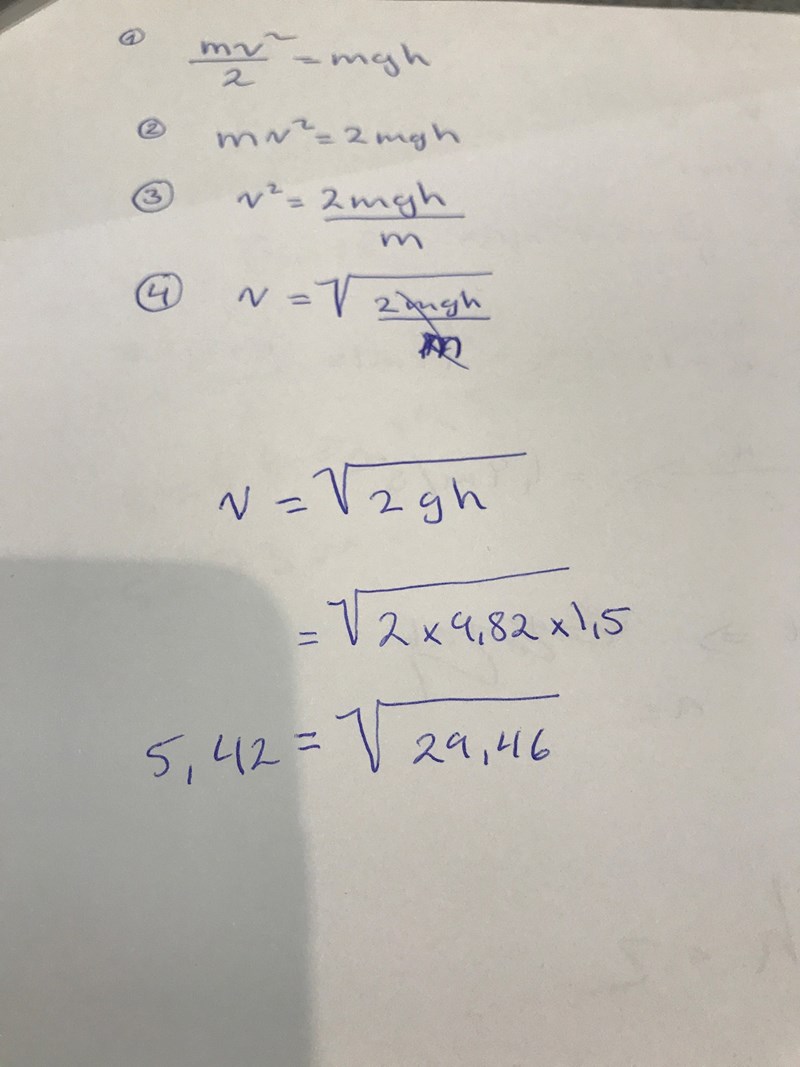 ① mv²/2 = mgh
② mv² = 2mgh
③ v² = 2mgh/m
④ v = √(2mgh/m)
v = √2gh
= √2×9,82×1,5
5,42 = √29,46